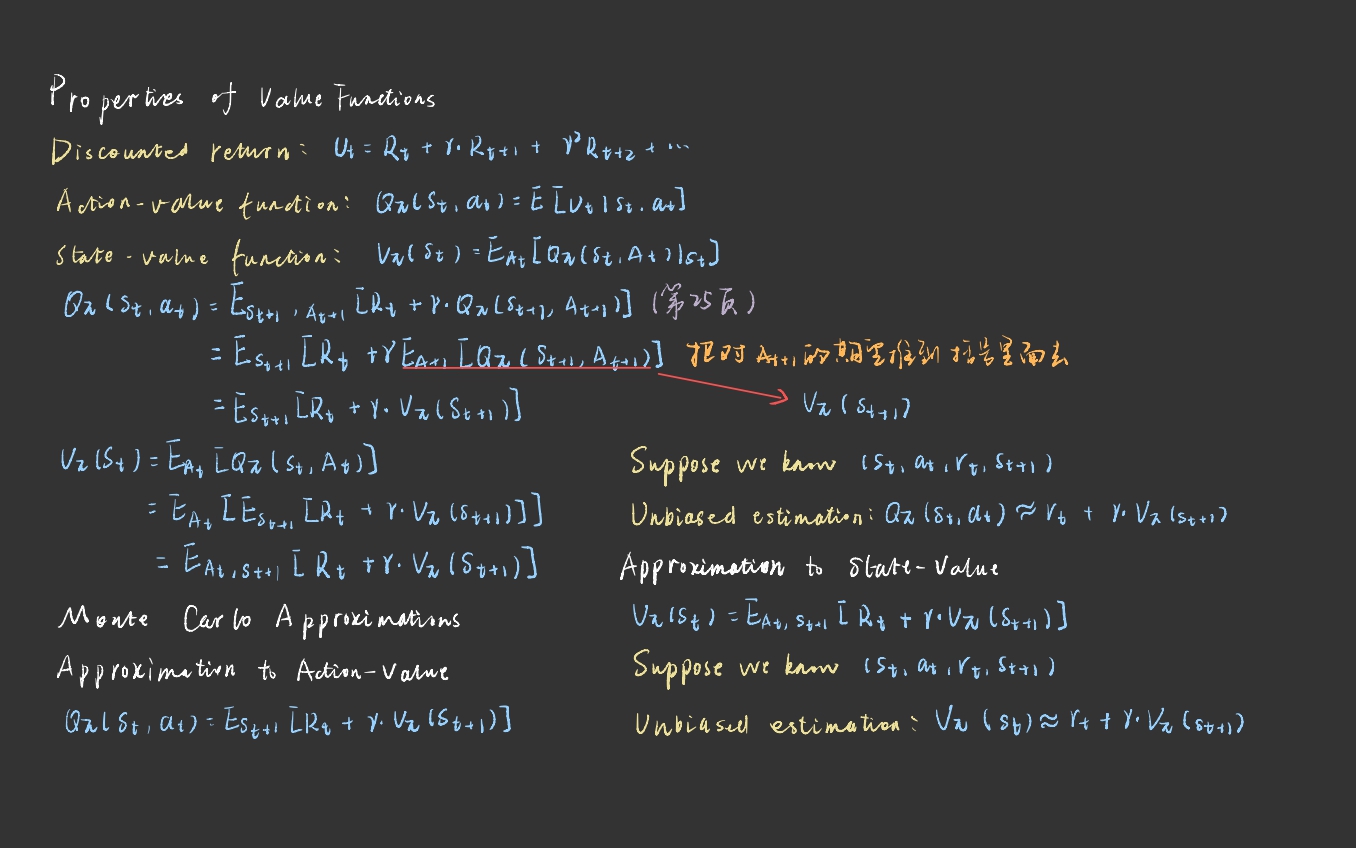 Properties of Value Functions
Discounted return: Uₜ = Rₜ + γ·Rₜ₊₁ + γ²Rₜ₊₂ + ⋯
Action-value function: Qπ(sₜ, aₜ) = E[Uₜ|sₜ, aₜ]
State-value function: Vπ(sₜ) = E_Aₜ[Qπ(sₜ, Aₜ)|sₜ]
Qπ(sₜ, aₜ) = E_Sₜ₊₁, Aₜ₊₁ [Rₜ + γ·Qπ(Sₜ₊₁, Aₜ₊₁)] (第25页)
= E_Sₜ₊₁ [Rₜ + γE_Aₜ₊₁ [Qπ(Sₜ₊₁, Aₜ₊₁)] 把对 Aₜ₊₁ 的期望推到括号里面去
= E_Sₜ₊₁ [Rₜ + γ·Vπ(Sₜ₊₁)]
Vπ(Sₜ₊₁)
Vπ(Sₜ) = E_Aₜ [Qπ(sₜ, Aₜ)]
= E_Aₜ [E_Sₜ₊₁ [Rₜ + γ·Vπ(Sₜ₊₁)]]
= E_Aₜ,Sₜ₊₁ [Rₜ + γ·Vπ(Sₜ₊₁)]
Monte Carlo Approximations
Approximation to Action-Value
Qπ(sₜ, aₜ) = E_Sₜ₊₁ [Rₜ + γ·Vπ(Sₜ₊₁)]
Suppose we know (sₜ, aₜ, rₜ, sₜ₊₁)
Unbiased estimation: Qπ(sₜ, aₜ) ≈ rₜ + γ·Vπ(sₜ₊₁)
Approximation to State-Value
Vπ(sₜ) = E_Aₜ,Sₜ₊₁ [Rₜ + γ·Vπ(Sₜ₊₁)]
Suppose we know (sₜ, aₜ, rₜ, sₜ₊₁)
Unbiased estimation: Vπ(sₜ) ≈ rₜ + γ·Vπ(sₜ₊₁)